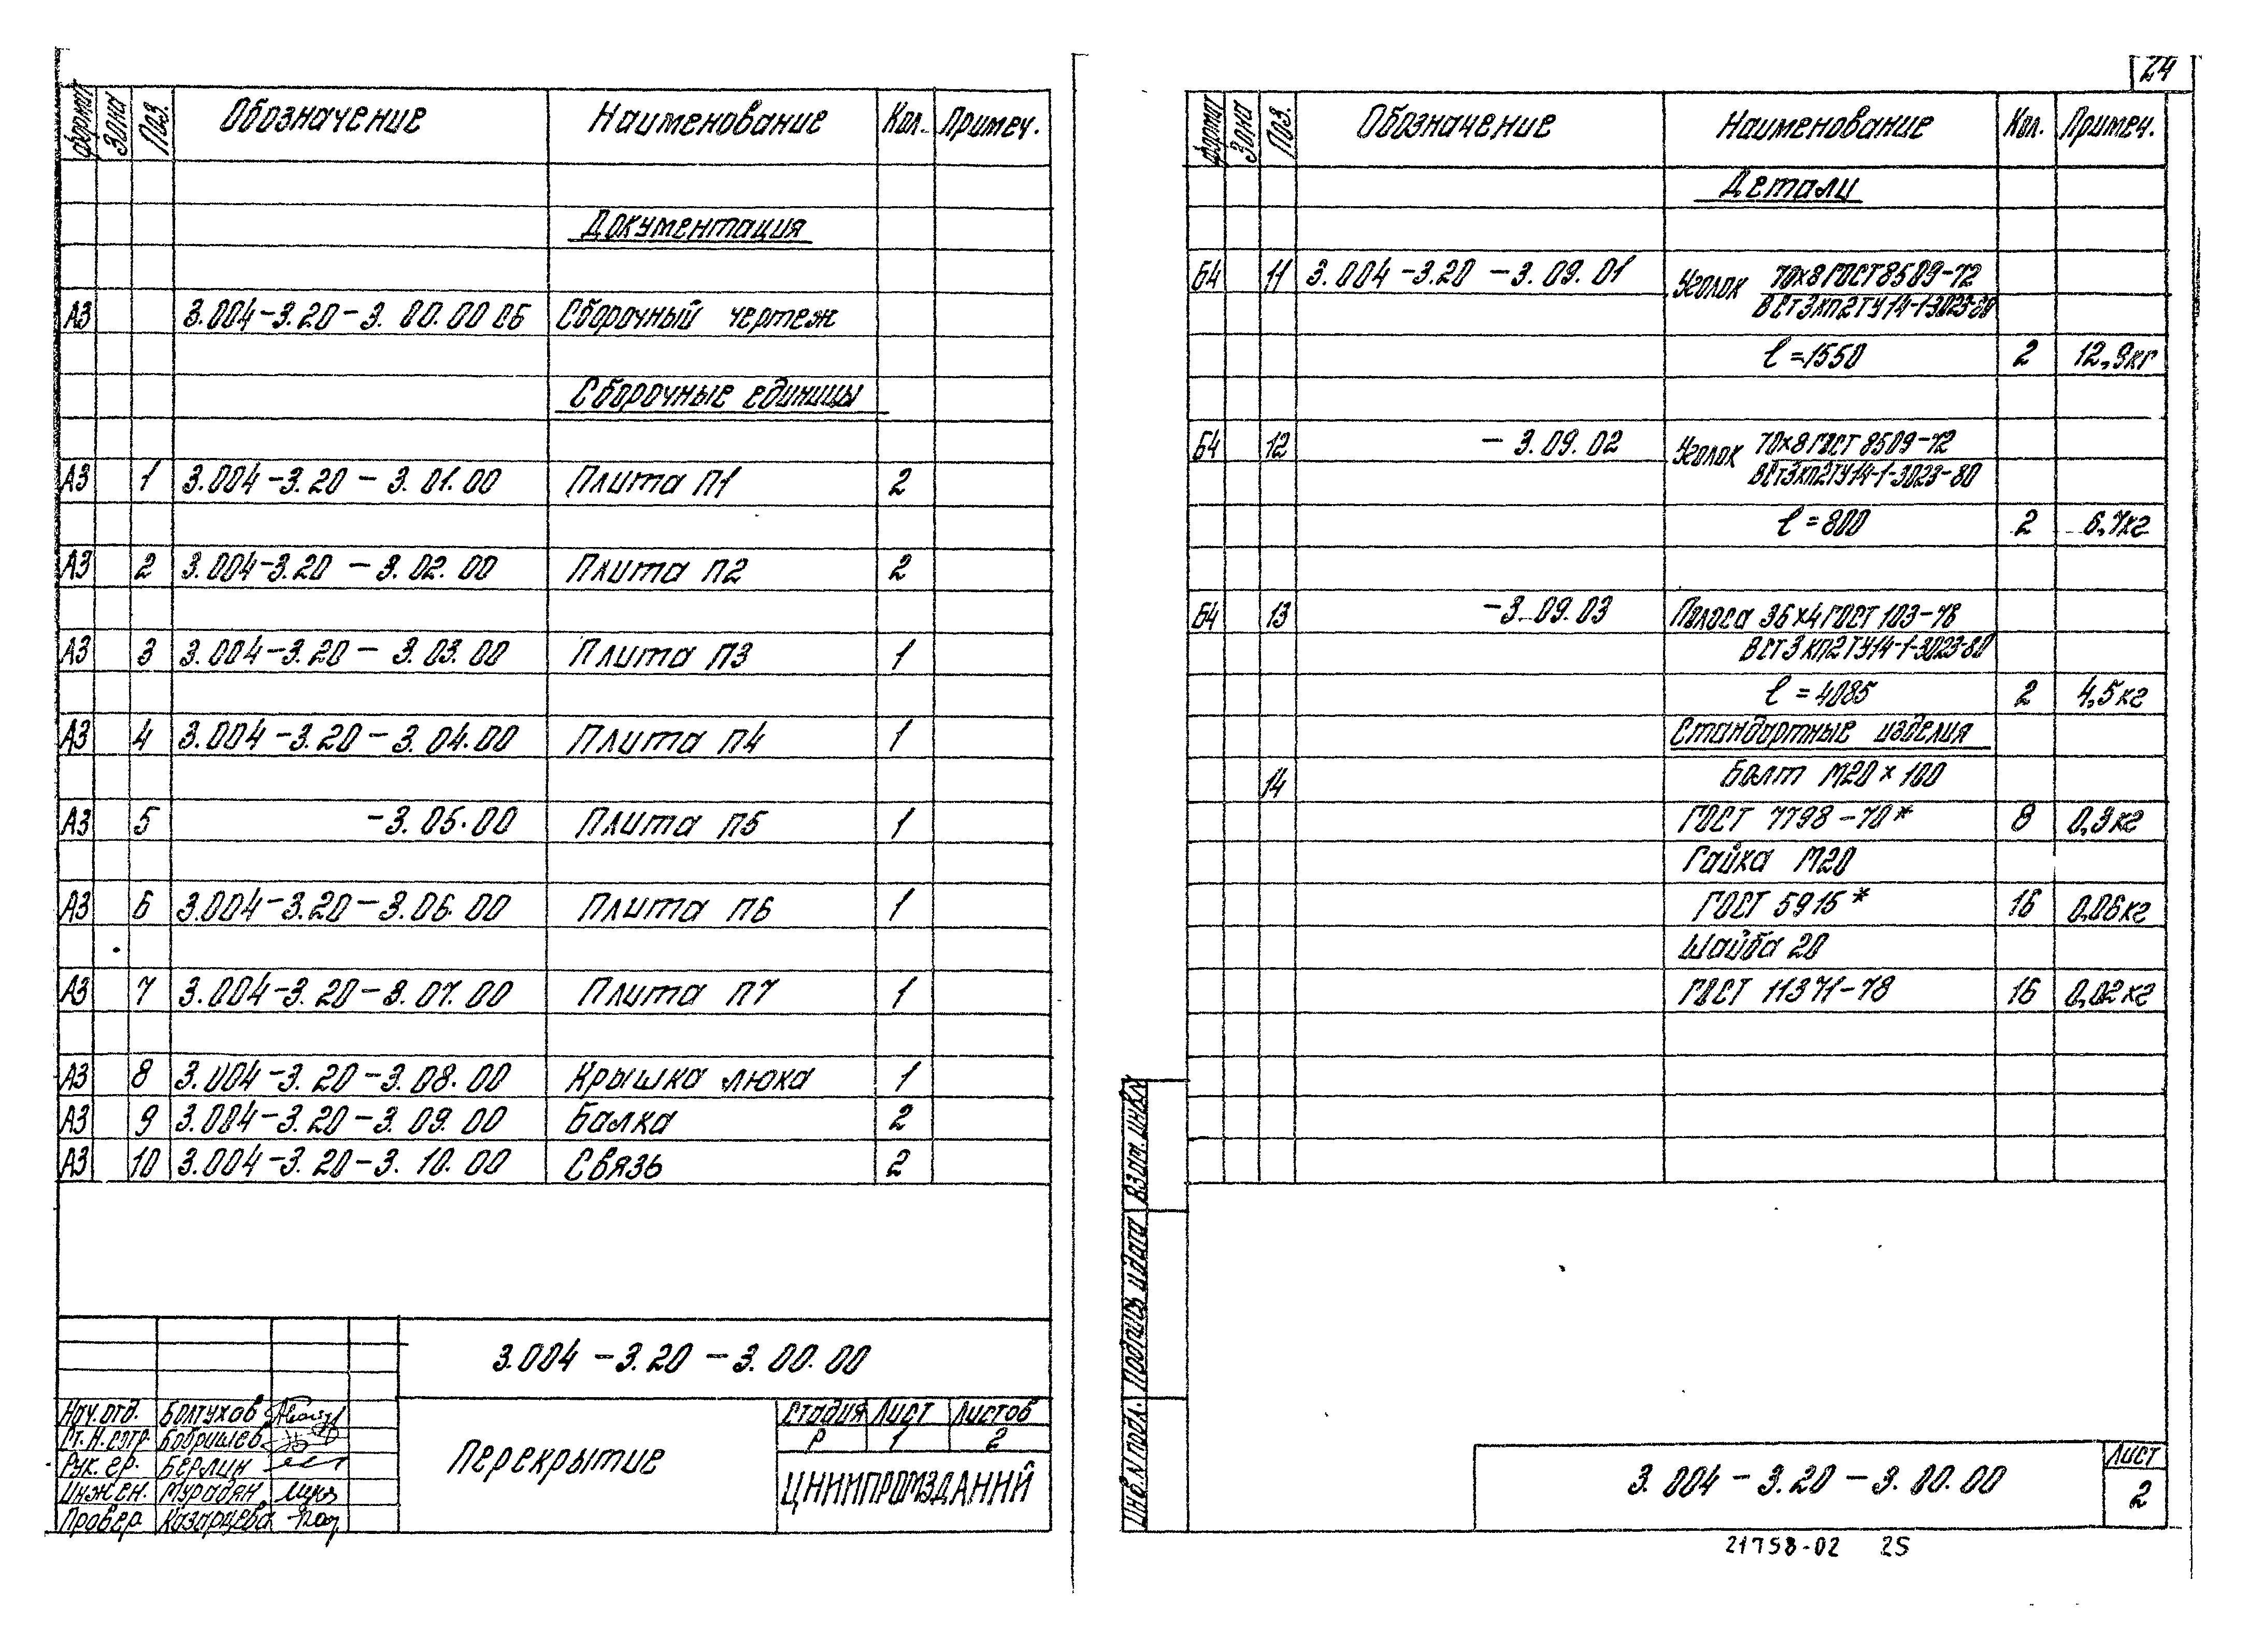 24
Формат Зона Поз. Обозначение Наименование Кол. Примеч.
Документация
А3 3.004-3.20-3.00.00 СБ Сборочный чертеж
Сборочные единицы
А3 1 3.004-3.20-3.01.00 Плита П1 2
А3 2 3.004-3.20-3.02.00 Плита П2 2
А3 3 3.004-3.20-3.03.00 Плита П3 1
А3 4 3.004-3.20-3.04.00 Плита П4 1
А3 5 -3.05.00 Плита П5 1
А3 6 3.004-3.20-3.06.00 Плита П6 1
А3 7 3.004-3.20-3.07.00 Плита П7 1
А3 8 3.004-3.20-3.08.00 Крышка люка 1
А3 9 3.004-3.20-3.09.00 Балка 2
А3 10 3.004-3.20-3.10.00 Связь 2
3.004-3.20-3.00.00
Нач. отд. Болтухов
Ст. н. сотр. Бобришев
Рук. гр. Берлин
Инжен. Мурадян
Провер. Казарцева
Перекрытие
Стадия Лист Листов
Р 1 2
ЦНИИПРОМЗДАНИЙ
Формат Зона Поз. Обозначение Наименование Кол. Примеч.
Детали
Б4 11 3.004-3.20-3.09.01 Уголок 70х8 ГОСТ 8509-72
ВСт3кп2 ТУ14-1-3023-80
ℓ=1550 2 12,9кг
Б4 12 -3.09.02 Уголок 70х8 ГОСТ 8509-72
ВСт3кп2 ТУ14-1-3023-80
ℓ=800 2 6,7кг
Б4 13 -3.09.03 Полоса 36х4 ГОСТ 103-78
ВСт3кп2 ТУ14-1-3023-80
ℓ=4085 2 4,5кг
Стандартные изделия
14 Болт М20×100
ГОСТ 7798-70* 8 0,3кг
Гайка М20
ГОСТ 5915* 16 0,06кг
Шайба 20
ГОСТ 11371-78 16 0,02кг
Инв. N подл. Подпись и дата Взам. инв. N
3.004-3.20-3.00.00
Лист
2
21758-02 25